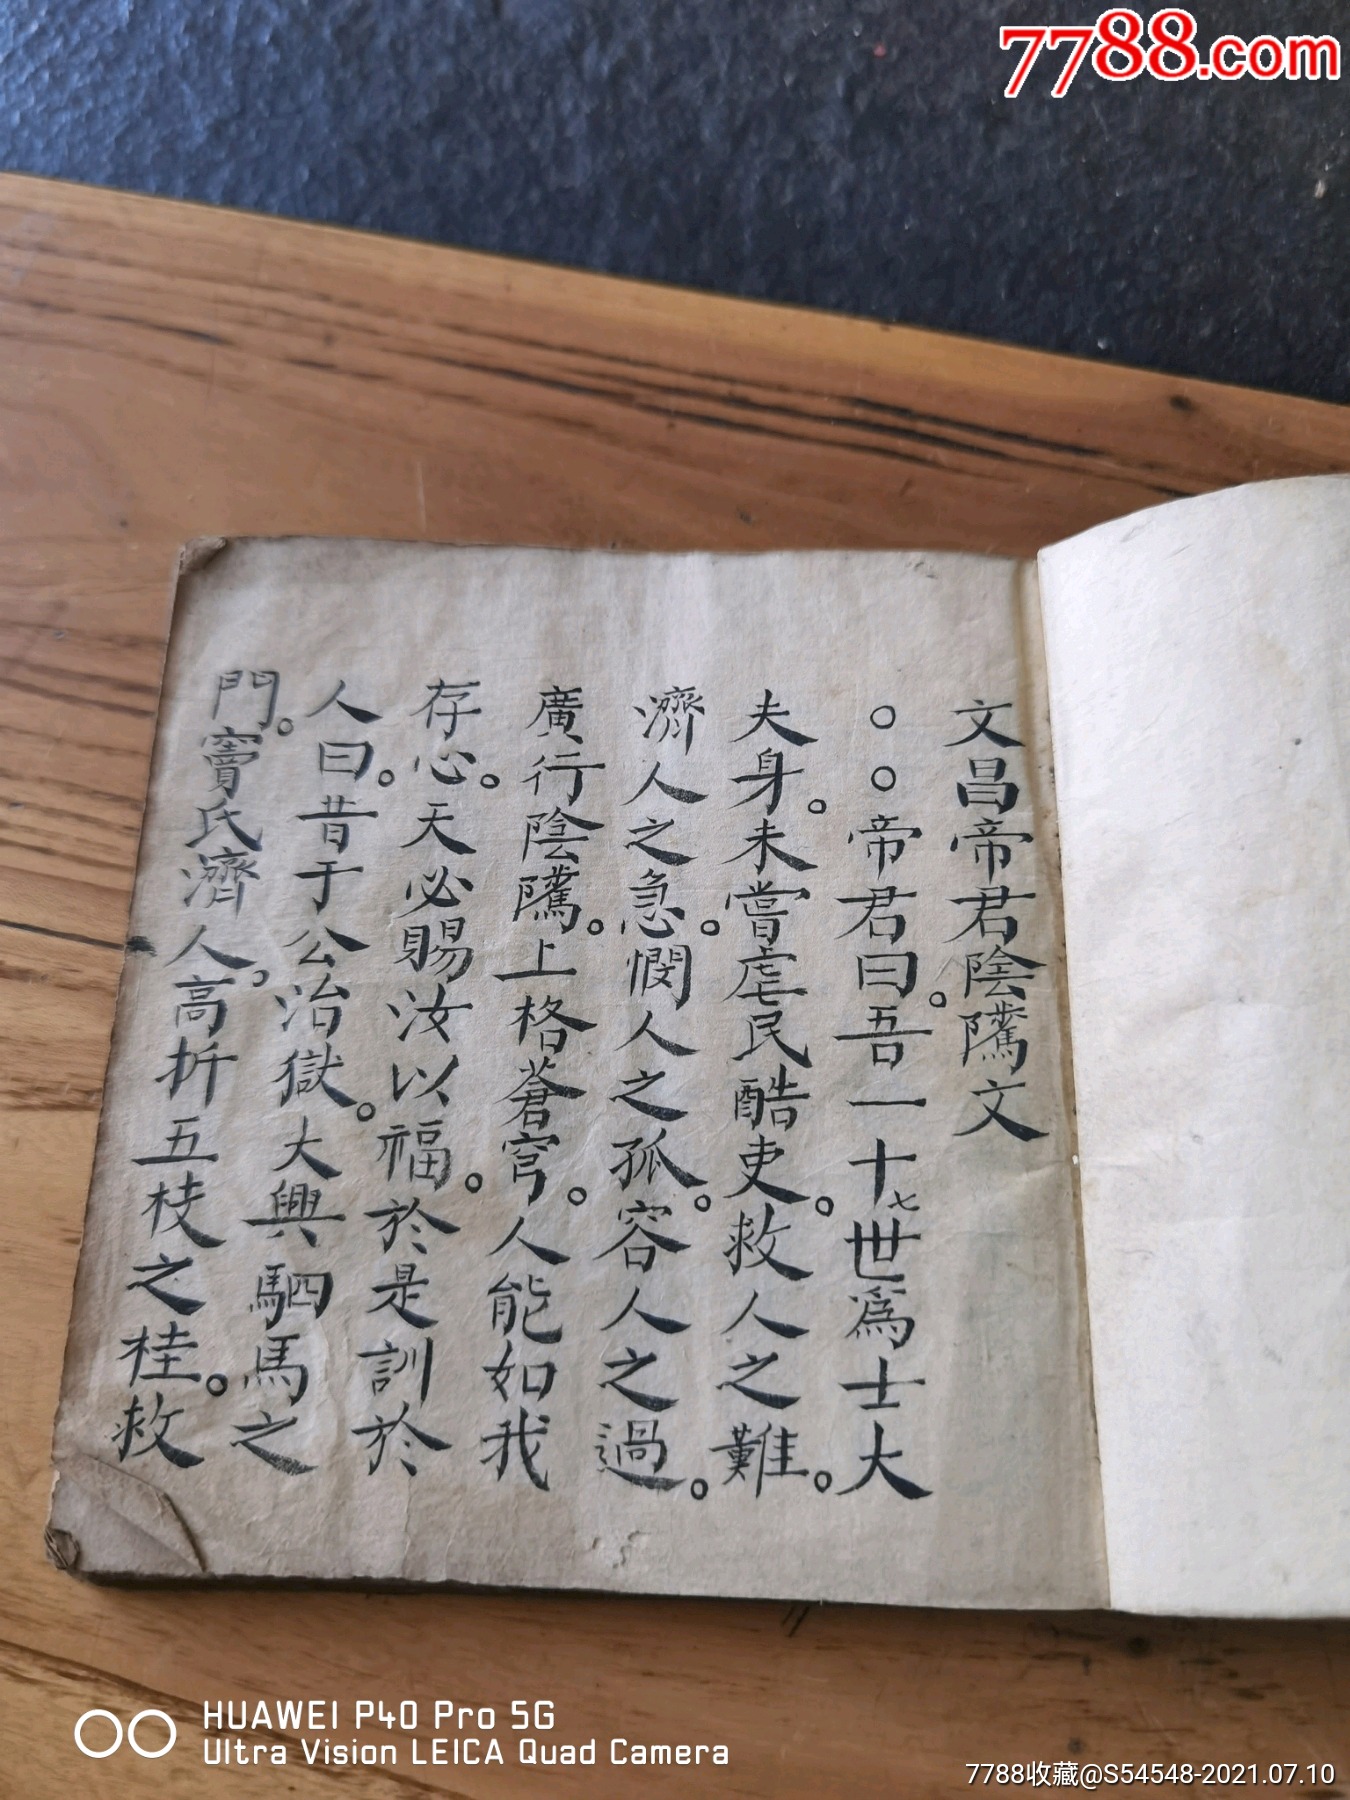 7788.com
文昌帝君陰隲文
○○帝君曰。吾一十七世爲士大
夫身。未嘗虐民酷吏。救人之難。
濟人之急。憫人之孤。容人之過。
廣行陰隲。上格蒼穹。人能如我
存心。天必賜汝以福。於是訓於
人曰。昔于公治獄。大興駟馬之
門。竇氏濟人。高折五枝之桂。救
HUAWEI P40 Pro 5G
Ultra Vision LEICA Quad Camera
7788收藏@S54548-2021.07.10